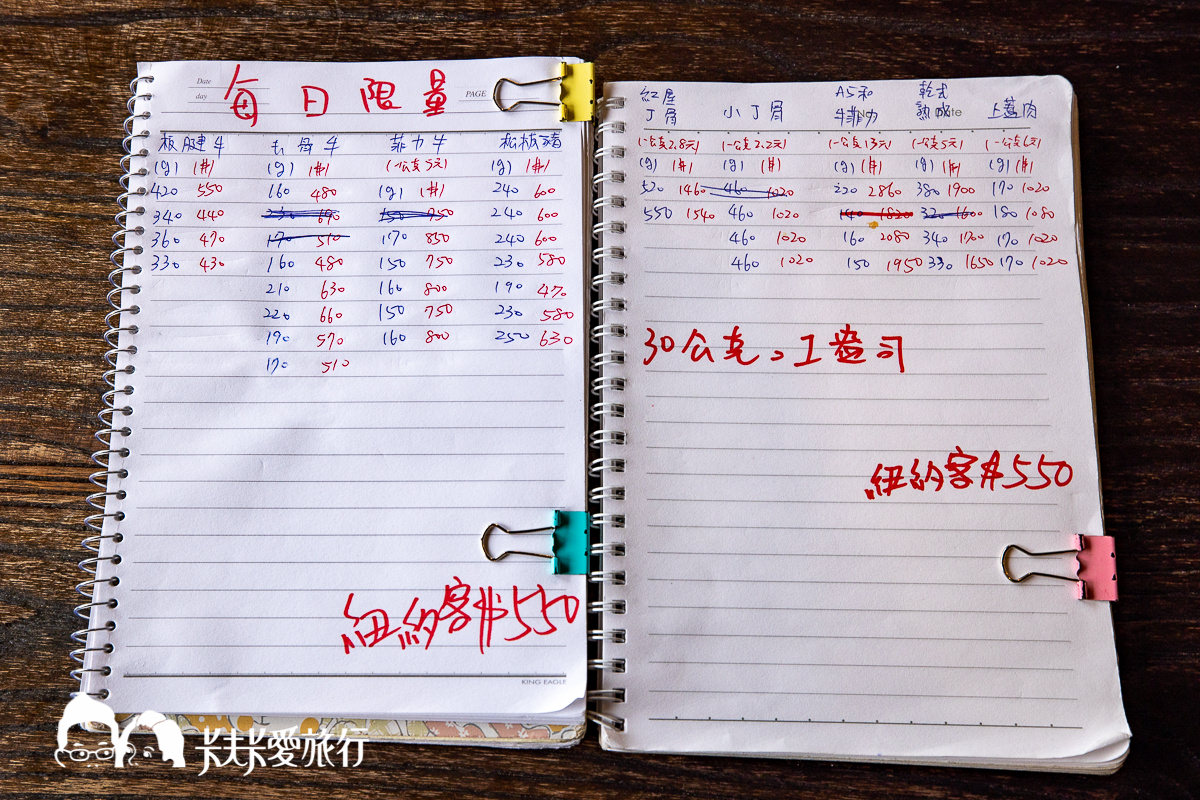 Date
day
PAGE
每日限量
板腱牛 去骨牛 菲力牛 松板豬
(g) (#) (g) (#) (一公克5元) (g) (#)
420 550 160 480 (g) (#) 240 600
340 440 230 690 150 750 240 600
360 470 170 510 170 850 240 600
330 430 160 480 150 750 230 580
210 630 160 800 190 470
220 660 150 750 230 580
190 570 160 800 250 630
170 510
紐約客#550
KING EAGLE
紅屋 A5和 乾式
丁骨 小丁骨 牛菲力 熟成 上蓋肉
(一公克2.8元) (一公克2.2元) (一公克13元) (一公克5元) (一公克6元)
(g) (#) (g) (#) (g) (#) (g) (#) (g) (#)
520 1460 460 1020 220 2860 380 1900 170 1020
550 1540 460 1020 140 1820 320 1600 180 1080
460 1020 160 2080 340 1700 170 1020
460 1020 150 1950 330 1650 170 1020
30公克。1盎司
紐約客#550
卡夫卡愛旅行